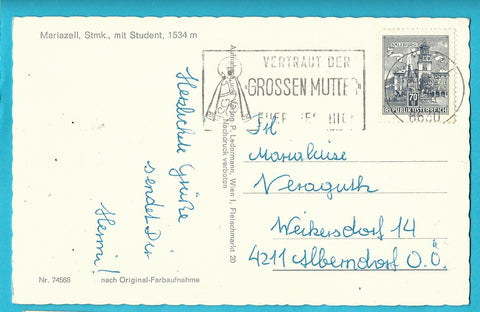 Mariazell, Stmk., mit Student, 1534 m
VERTRAUT DER
GROSSEN MUTTER
SALZBURG
70
REPUBLIK ÖSTERREICH
8630
Herzlichste Grüße
sendet Dir
Hermi!
Aufnahme und Verlag P. Ledermann, Wien I, Fleischmarkt 20
Nachdruck verboten
Marialuise
Veraguth
Weikersdorf 14
4211 Alberndorf O.Ö.
Nr. 74568
nach Original-Farbaufnahme